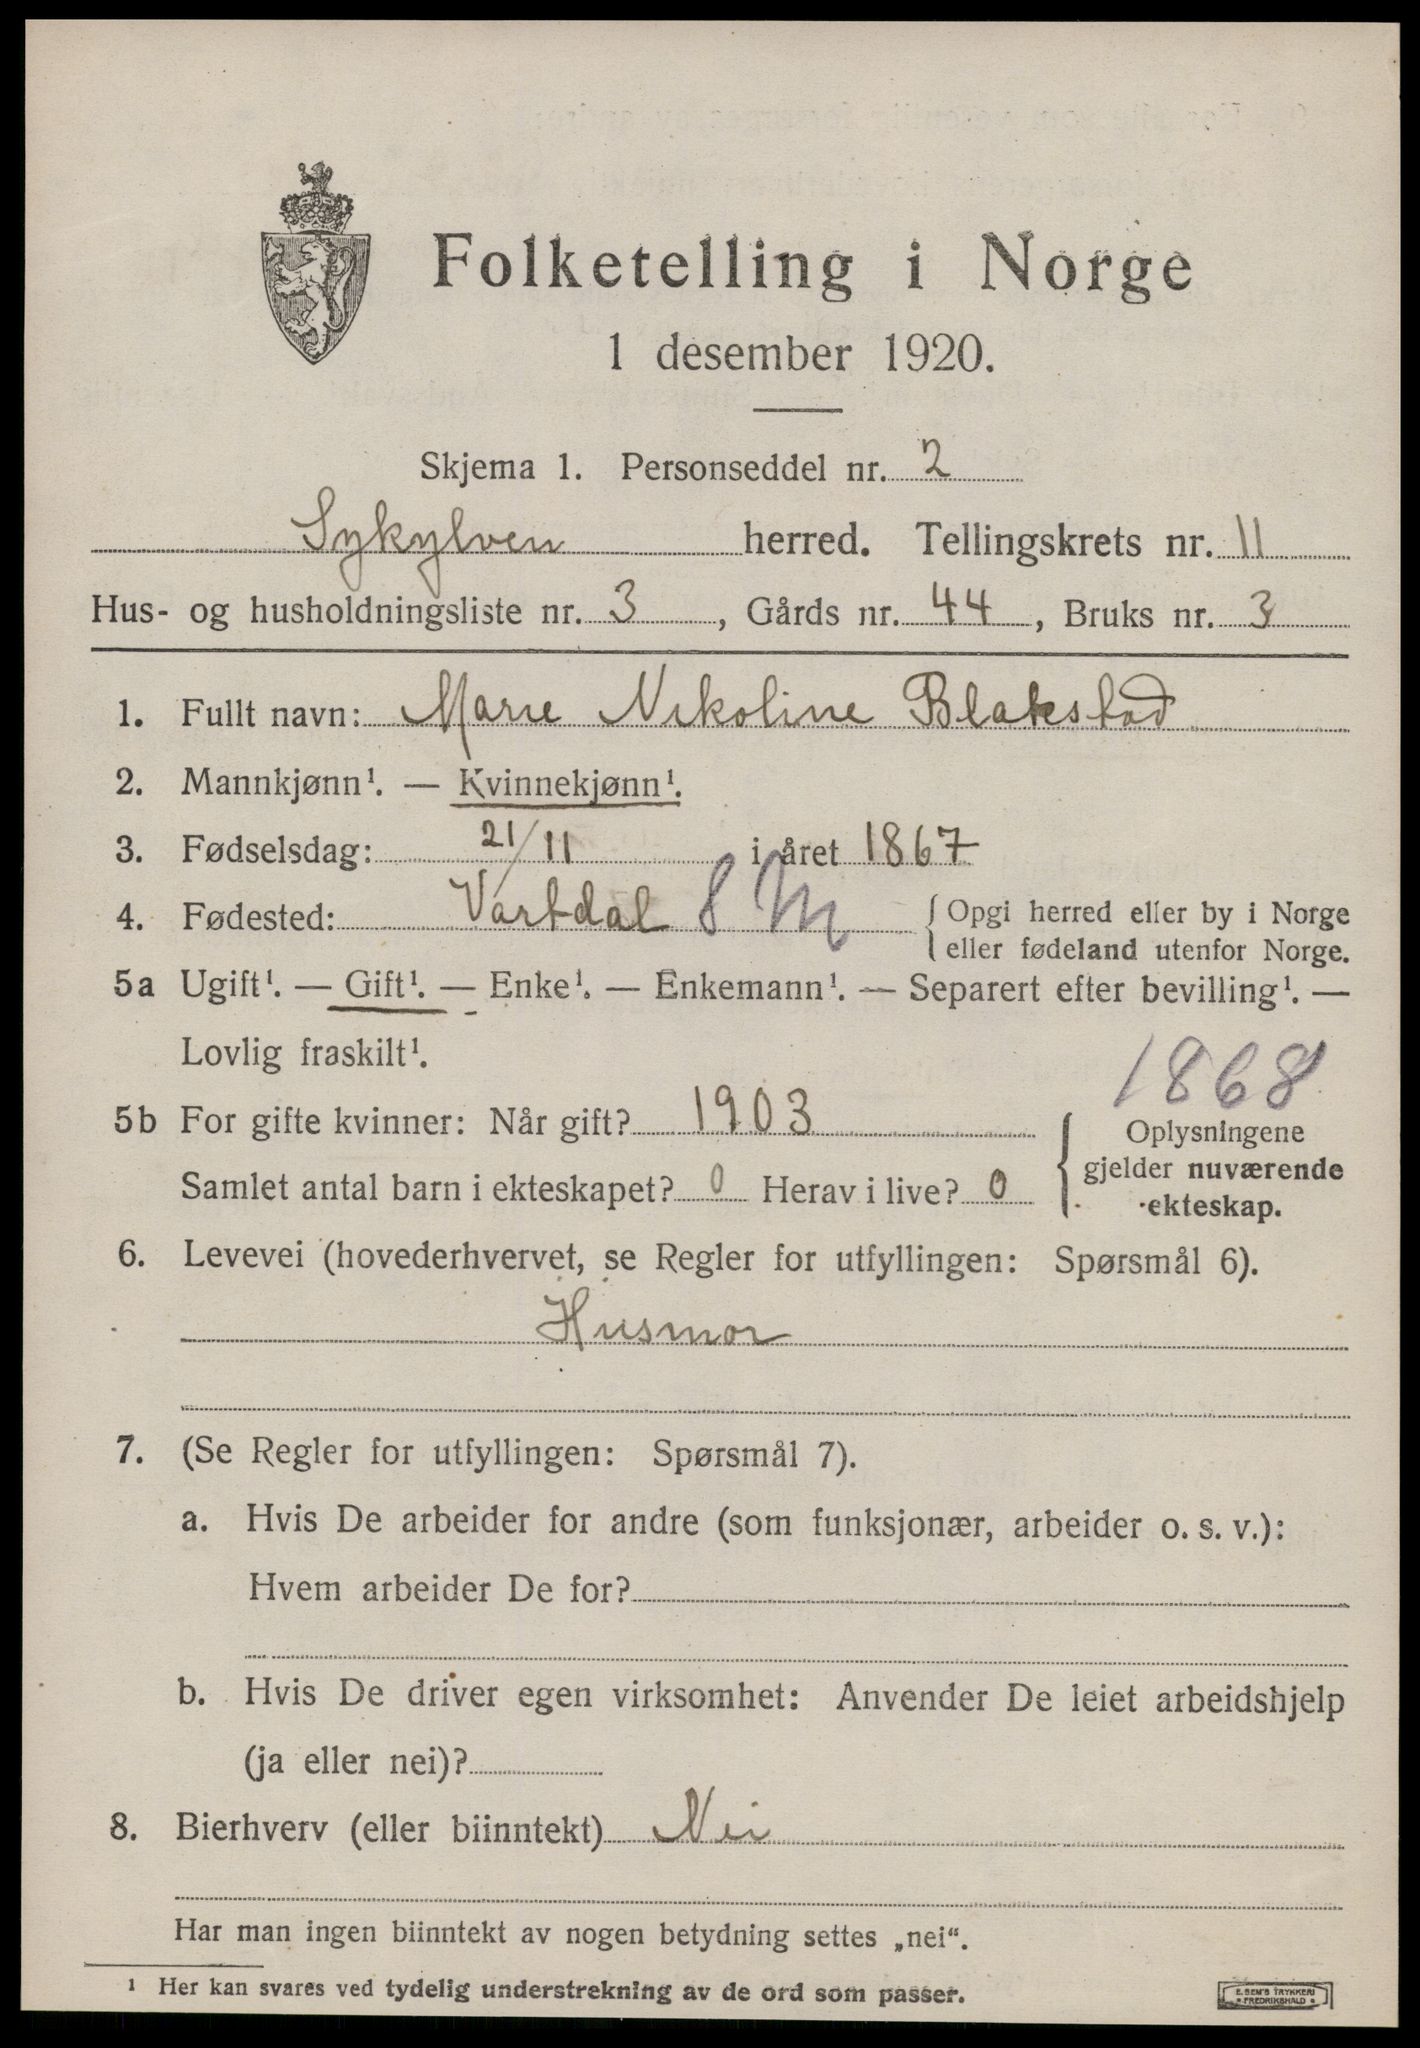 Folketelling i Norge
1 desember 1920.
Skjema 1. Personseddel nr. 2
Sykylven herred. Tellingskrets nr. 11
Hus- og husholdningsliste nr. 3, Gårds nr. 44, Bruks nr. 3
1. Fullt navn: Marie Nikoline Blakstad
2. Mannkjønn¹. — Kvinnekjønn¹.
3. Fødselsdag: 21/11 i året 1867
4. Fødested: Vartdal 8 M { Opgi herred eller by i Norge
eller fødeland utenfor Norge.
5a Ugift¹. — Gift¹. — Enke¹. — Enkemann¹. — Separert efter bevilling¹. —
Lovlig fraskilt¹.
1868
5b For gifte kvinner: Når gift? 1903
Samlet antal barn i ekteskapet? 0 Herav i live? 0
{ Oplysningene
gjelder nuværende
ekteskap.
6. Levevei (hovederhvervet, se Regler for utfyllingen: Spørsmål 6).
Husmor
7. (Se Regler for utfyllingen: Spørsmål 7).
a. Hvis De arbeider for andre (som funksjonær, arbeider o. s. v.):
Hvem arbeider De for?
b. Hvis De driver egen virksomhet: Anvender De leiet arbeidshjelp
(ja eller nei)?
8. Bierhverv (eller biinntekt) Nei
Har man ingen biinntekt av nogen betydning settes „nei“.
¹ Her kan svares ved tydelig understrekning av de ord som passer.
E. SEM'S TRYKKERI
• FREDRIKSHALD •